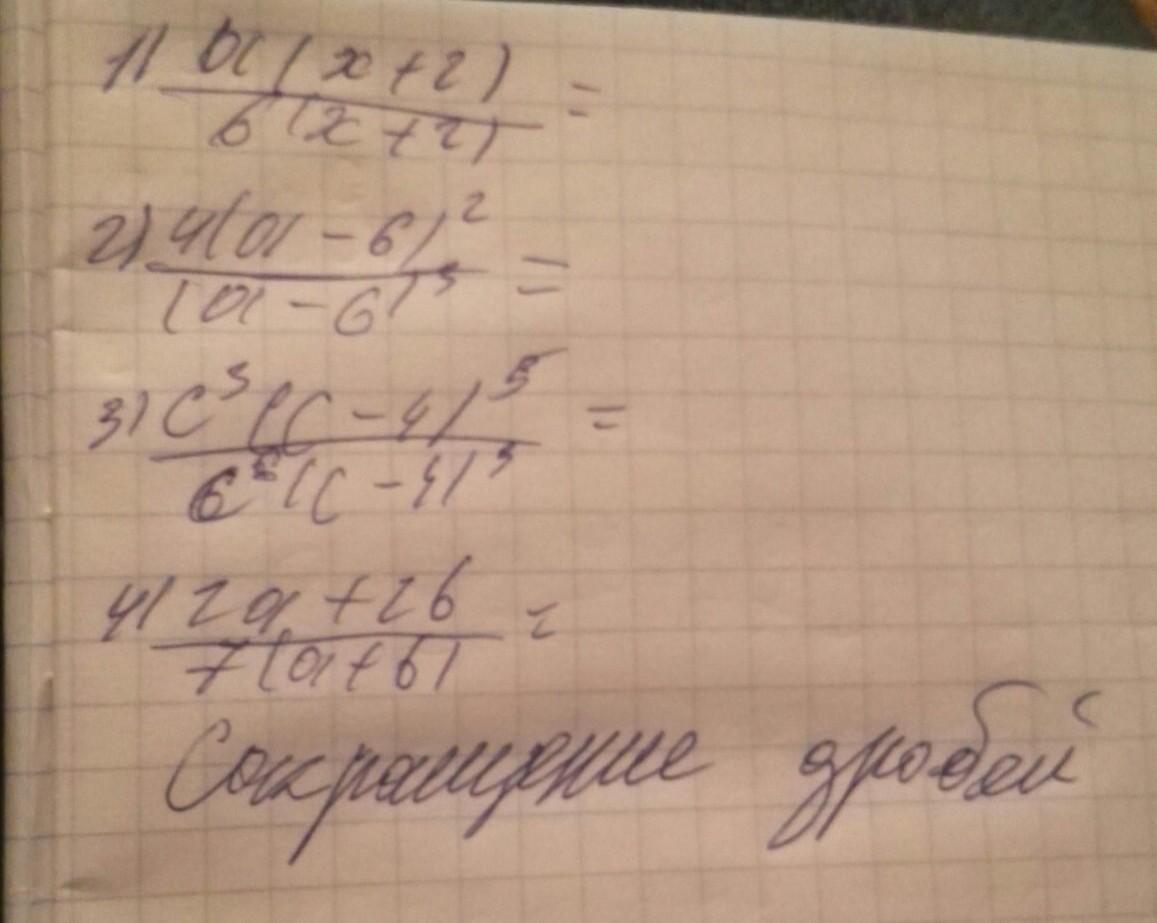 1) a(x+2)
6(x+2) =
2) 4(a-b)²
(a-b)³ =
3) c³(c-4)⁵
c⁵(c-4)³ =
4) 2a+2b
7(a+b) =
Сокращение дробей